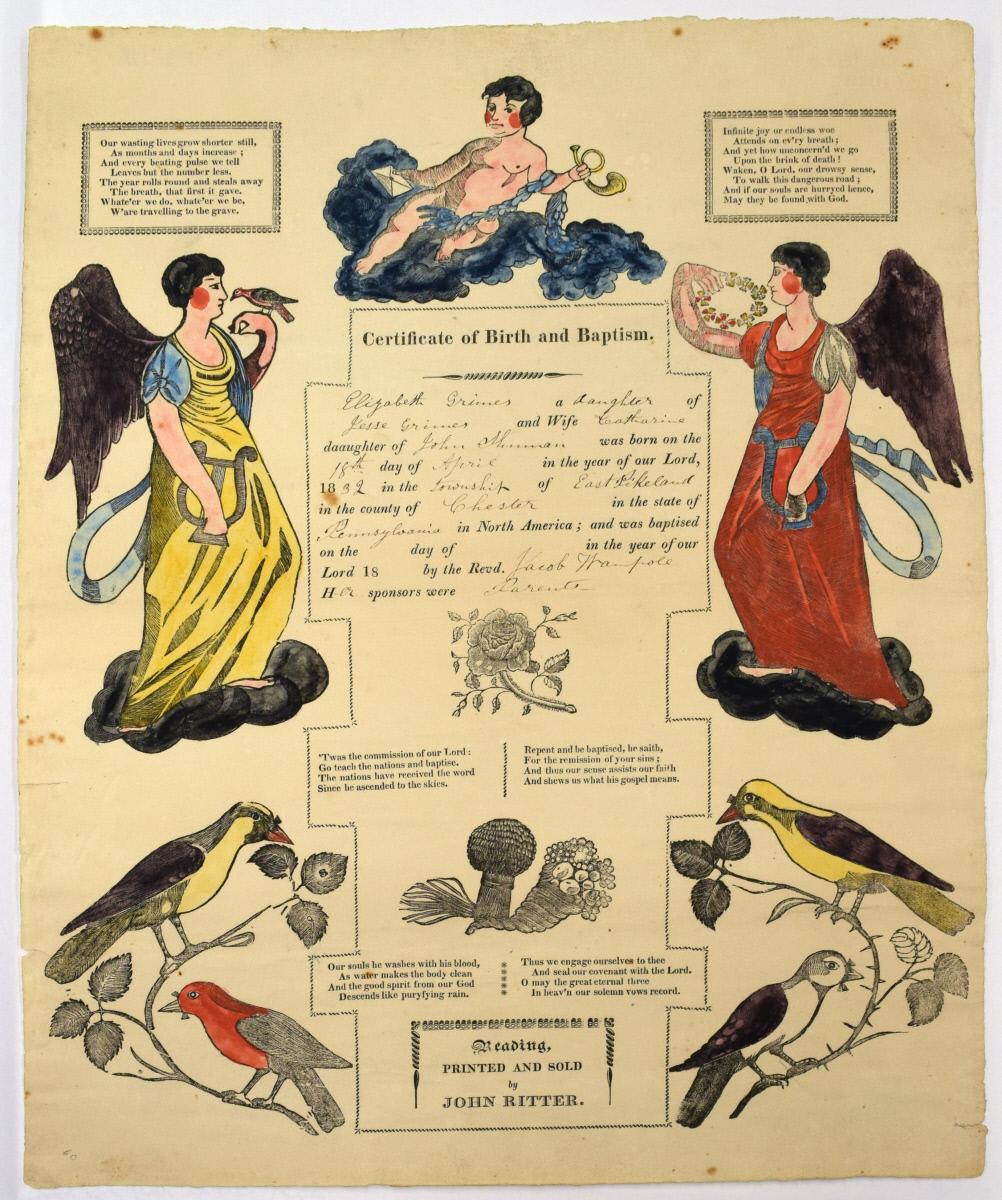 Our wasting lives grow shorter still,
As months and days increase ;
And every beating pulse we tell
Leaves but the number less.
The year rolls round and steals away
The breath, that first it gave.
Whate'er we do, whate'er we be,
W'are travelling to the grave.
Infinite joy or endless woe
Attends on ev'ry breath ;
And yet how unconcern'd we go
Upon the brink of death !
Waken, O Lord, our drowsy sense,
To walk this dangerous road ;
And if our souls are hurryed hence,
May they be found with God.
Certificate of Birth and Baptism.
Elizabeth Grimes a daughter of
Jesse Grimes and Wife Catharine
daaughter of John Shuman was born on the
18th day of April in the year of our Lord,
1832 in the Township of East Pikeland
in the county of Chester in the state of
Pennsylvania in North America ; and was baptised
on the day of in the year of our
Lord 18 by the Revd. Jacob Wampole
Her sponsors were Parents
'Twas the commission of our Lord :
Go teach the nations and baptise.
The nations have received the word
Since he ascended to the skies.
Repent and be baptised, he saith,
For the remission of your sins ;
And thus our sense assists our faith
And shews us what his gospel means.
Our souls he washes with his blood,
As water makes the body clean
And the good spirit from our God
Descends like puryfying rain.
Thus we engage ourselves to thee
And seal our covenant with the Lord.
O may the great eternal three
In heav'n our solemn vows record.
Reading,
PRINTED AND SOLD
by
JOHN RITTER.